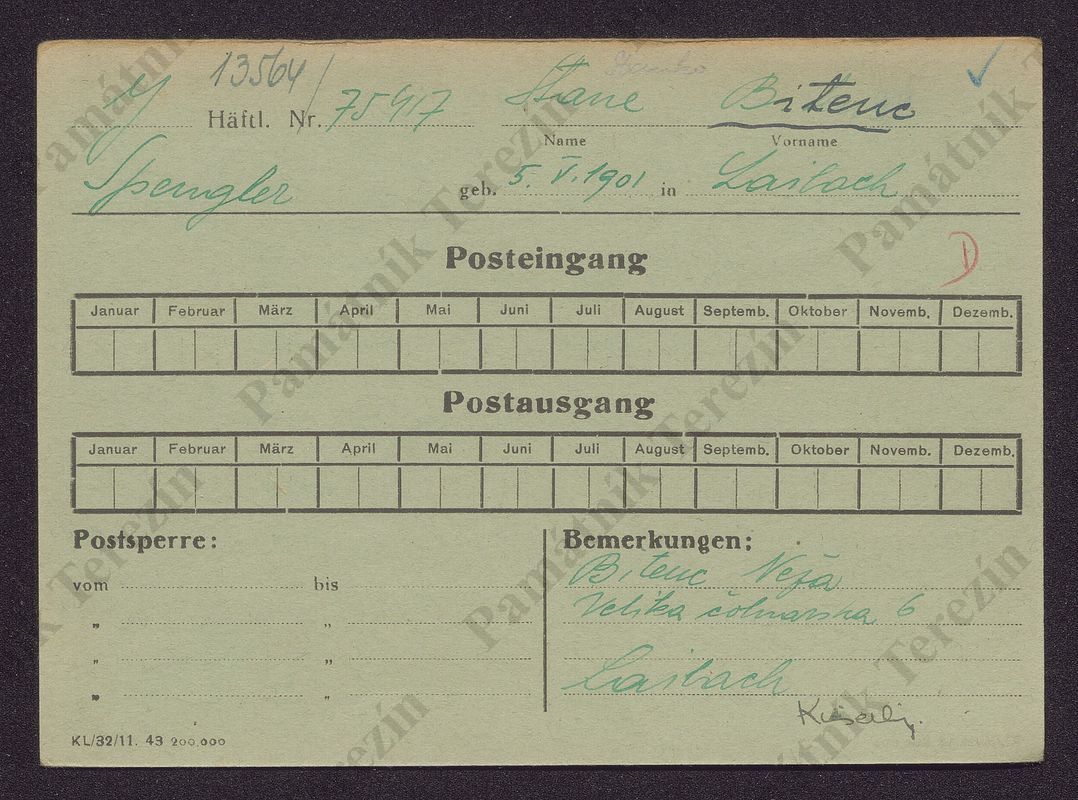 13564
Häftl. Nr. 75917 Stane Bitenc
Name Vorname
Spengler geb. 5. V. 1901 in Laibach
D
Posteingang
Januar Februar März April Mai Juni Juli August Septemb. Oktober Novemb. Dezemb.
Postausgang
Januar Februar März April Mai Juni Juli August Septemb. Oktober Novemb. Dezemb.
Postsperre: Bemerkungen:
vom bis Bitenc Neža
" " Velika čolnarska 6
" "
" " Laibach
KL/32/11. 43 200.000
Památník Terezín